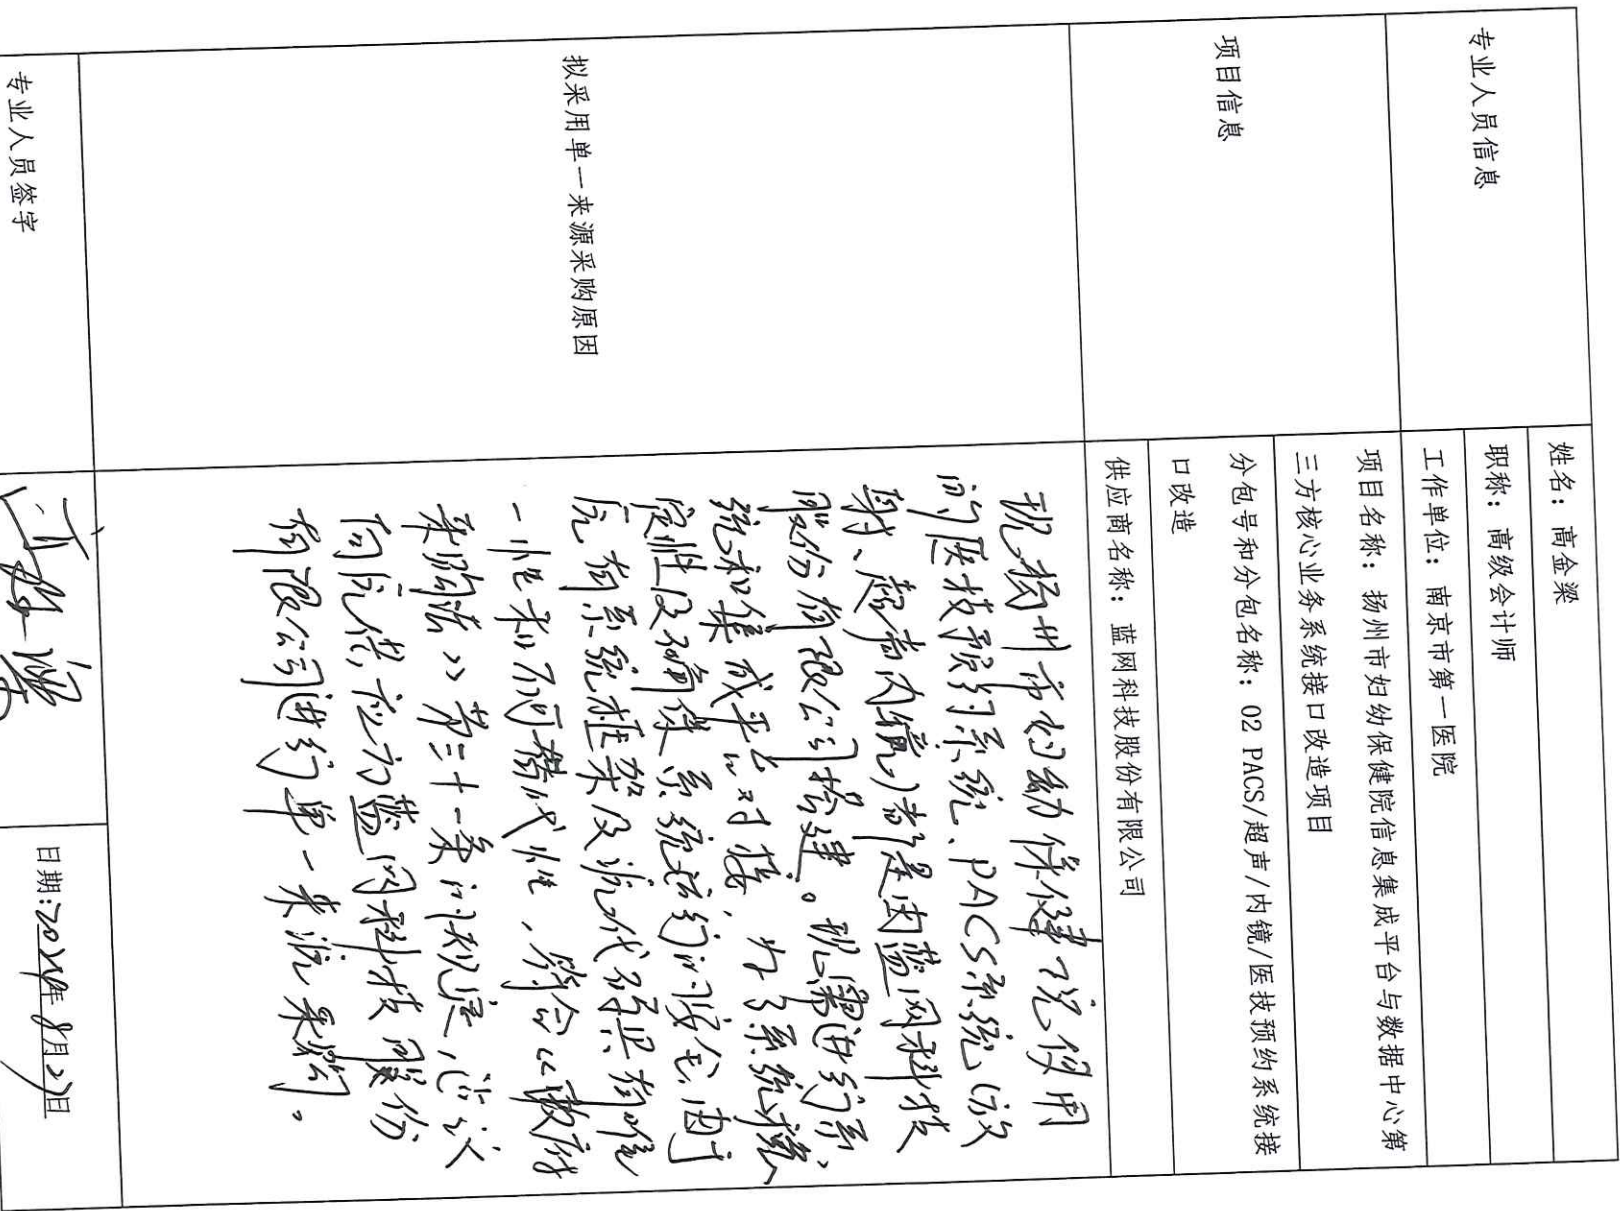 专业人员信息
姓名：高金梁
职称：高级会计师
工作单位：南京市第一医院
项目信息
项目名称：扬州市妇幼保健院信息集成平台与数据中心第
三方核心业务系统接口改造项目
分包号和分包名称：02 PACS/超声/内镜/医技预约系统接
口改造
供应商名称：蓝网科技股份有限公司
拟采用单一来源采购原因
现扬州市妇幼保健院使用
的医技预约系统、PACS系统（放
射、超声内镜）都是由蓝网科技
股份有限公司搭建。现需进行系
统和集成平台对接，为了系统稳
定性及确保系统运行的安全，由于
原有系统框架及源代码具有唯
一性和不可替代性，符合《政府
采购法》第三十一条的规定，建议
向原供应商蓝网科技股份
有限公司进行单一来源采购。
专业人员签字
高金梁
日期:2024年8月27日